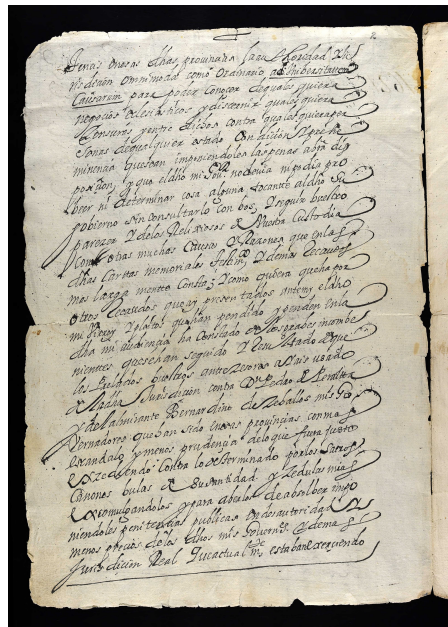 teneis en esas dhas provincias para Autoridad y Ju
risdicion omnimoda como ordinario ad universitatem
Causarum para poder conocer de qualesquiera
negocios eclesiasticos y discernir qualesquiera
Censuras contra qualesquiera per
sonas de qualquier estado condicion y prehe
minencia que sean imponiendoles las penas a
posicion, y que el dho mi Gor. no devia ni podia pro
beer ni determinar cosa alguna tocante al dho Su
gobierno sin consultarlo con vos, y seguir vuestro
parezer y de los Religiosos de Vuestra Custodia
con otras muchas Causas y Razones que en las
dhas Cartas memoriales y demas Recaudos
mas larga mente Consta; y como quiera que ha por
otros Recaudos que ay presentados ante my el dho
mi Virrey y pleytos que han pendido y penden en la
dha mi audiencia ha Constado de los grabes incombe
nientes que se han seguido y Resultado de que
los Prelados vuestros antecesores ayais usado
de dicha Jurisdicion contra Dn. Pedro de Peralta
y del almirante Bernardino de Zeballos mis Go
vernadores que han sido en esas provincias con mas
escandalo y menos prudencia de lo que fuera justo
exzediendo contra lo determinado por los Sacros
Canones bulas de Su Santidad y Zedulas mias
excomulgandolos y para abellos de absolber impo
niendoles penitencias publicas en desautoridad y
menos precio de los dhos mis Governes. y de mi
Jurisdicion Real que actualmte. estaban exerciendo